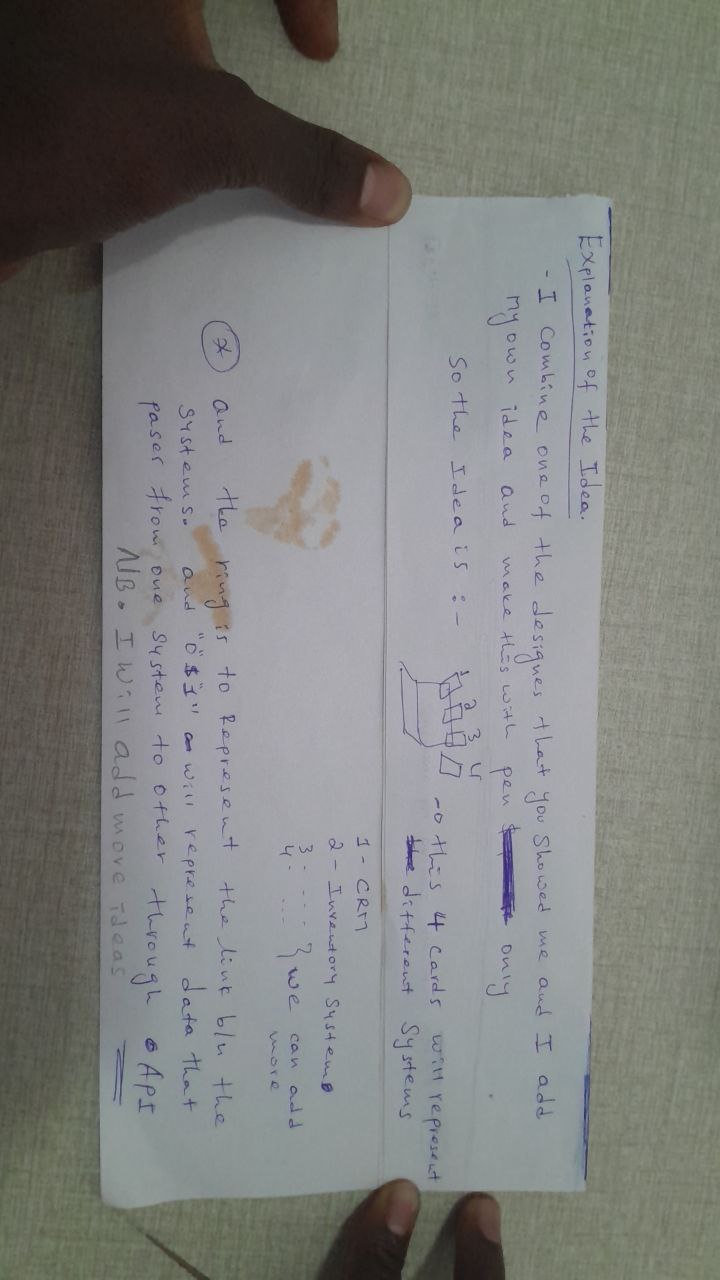 Explanation of the Idea.
- I Combine one of the designes that you showed me and I add
my own idea and make this with pen only
So the Idea is :-
1 2 3 4
-o this 4 cards will represent
different Systems
1 - CRM
2 - Inventory Systems
3. - - - -
4. ... } we can add
more
* and the ring is to Represent the link b/n the
Systems. and "0 $ 1" will represent data that
paser from one System to other through API
NB. I will add more ideas